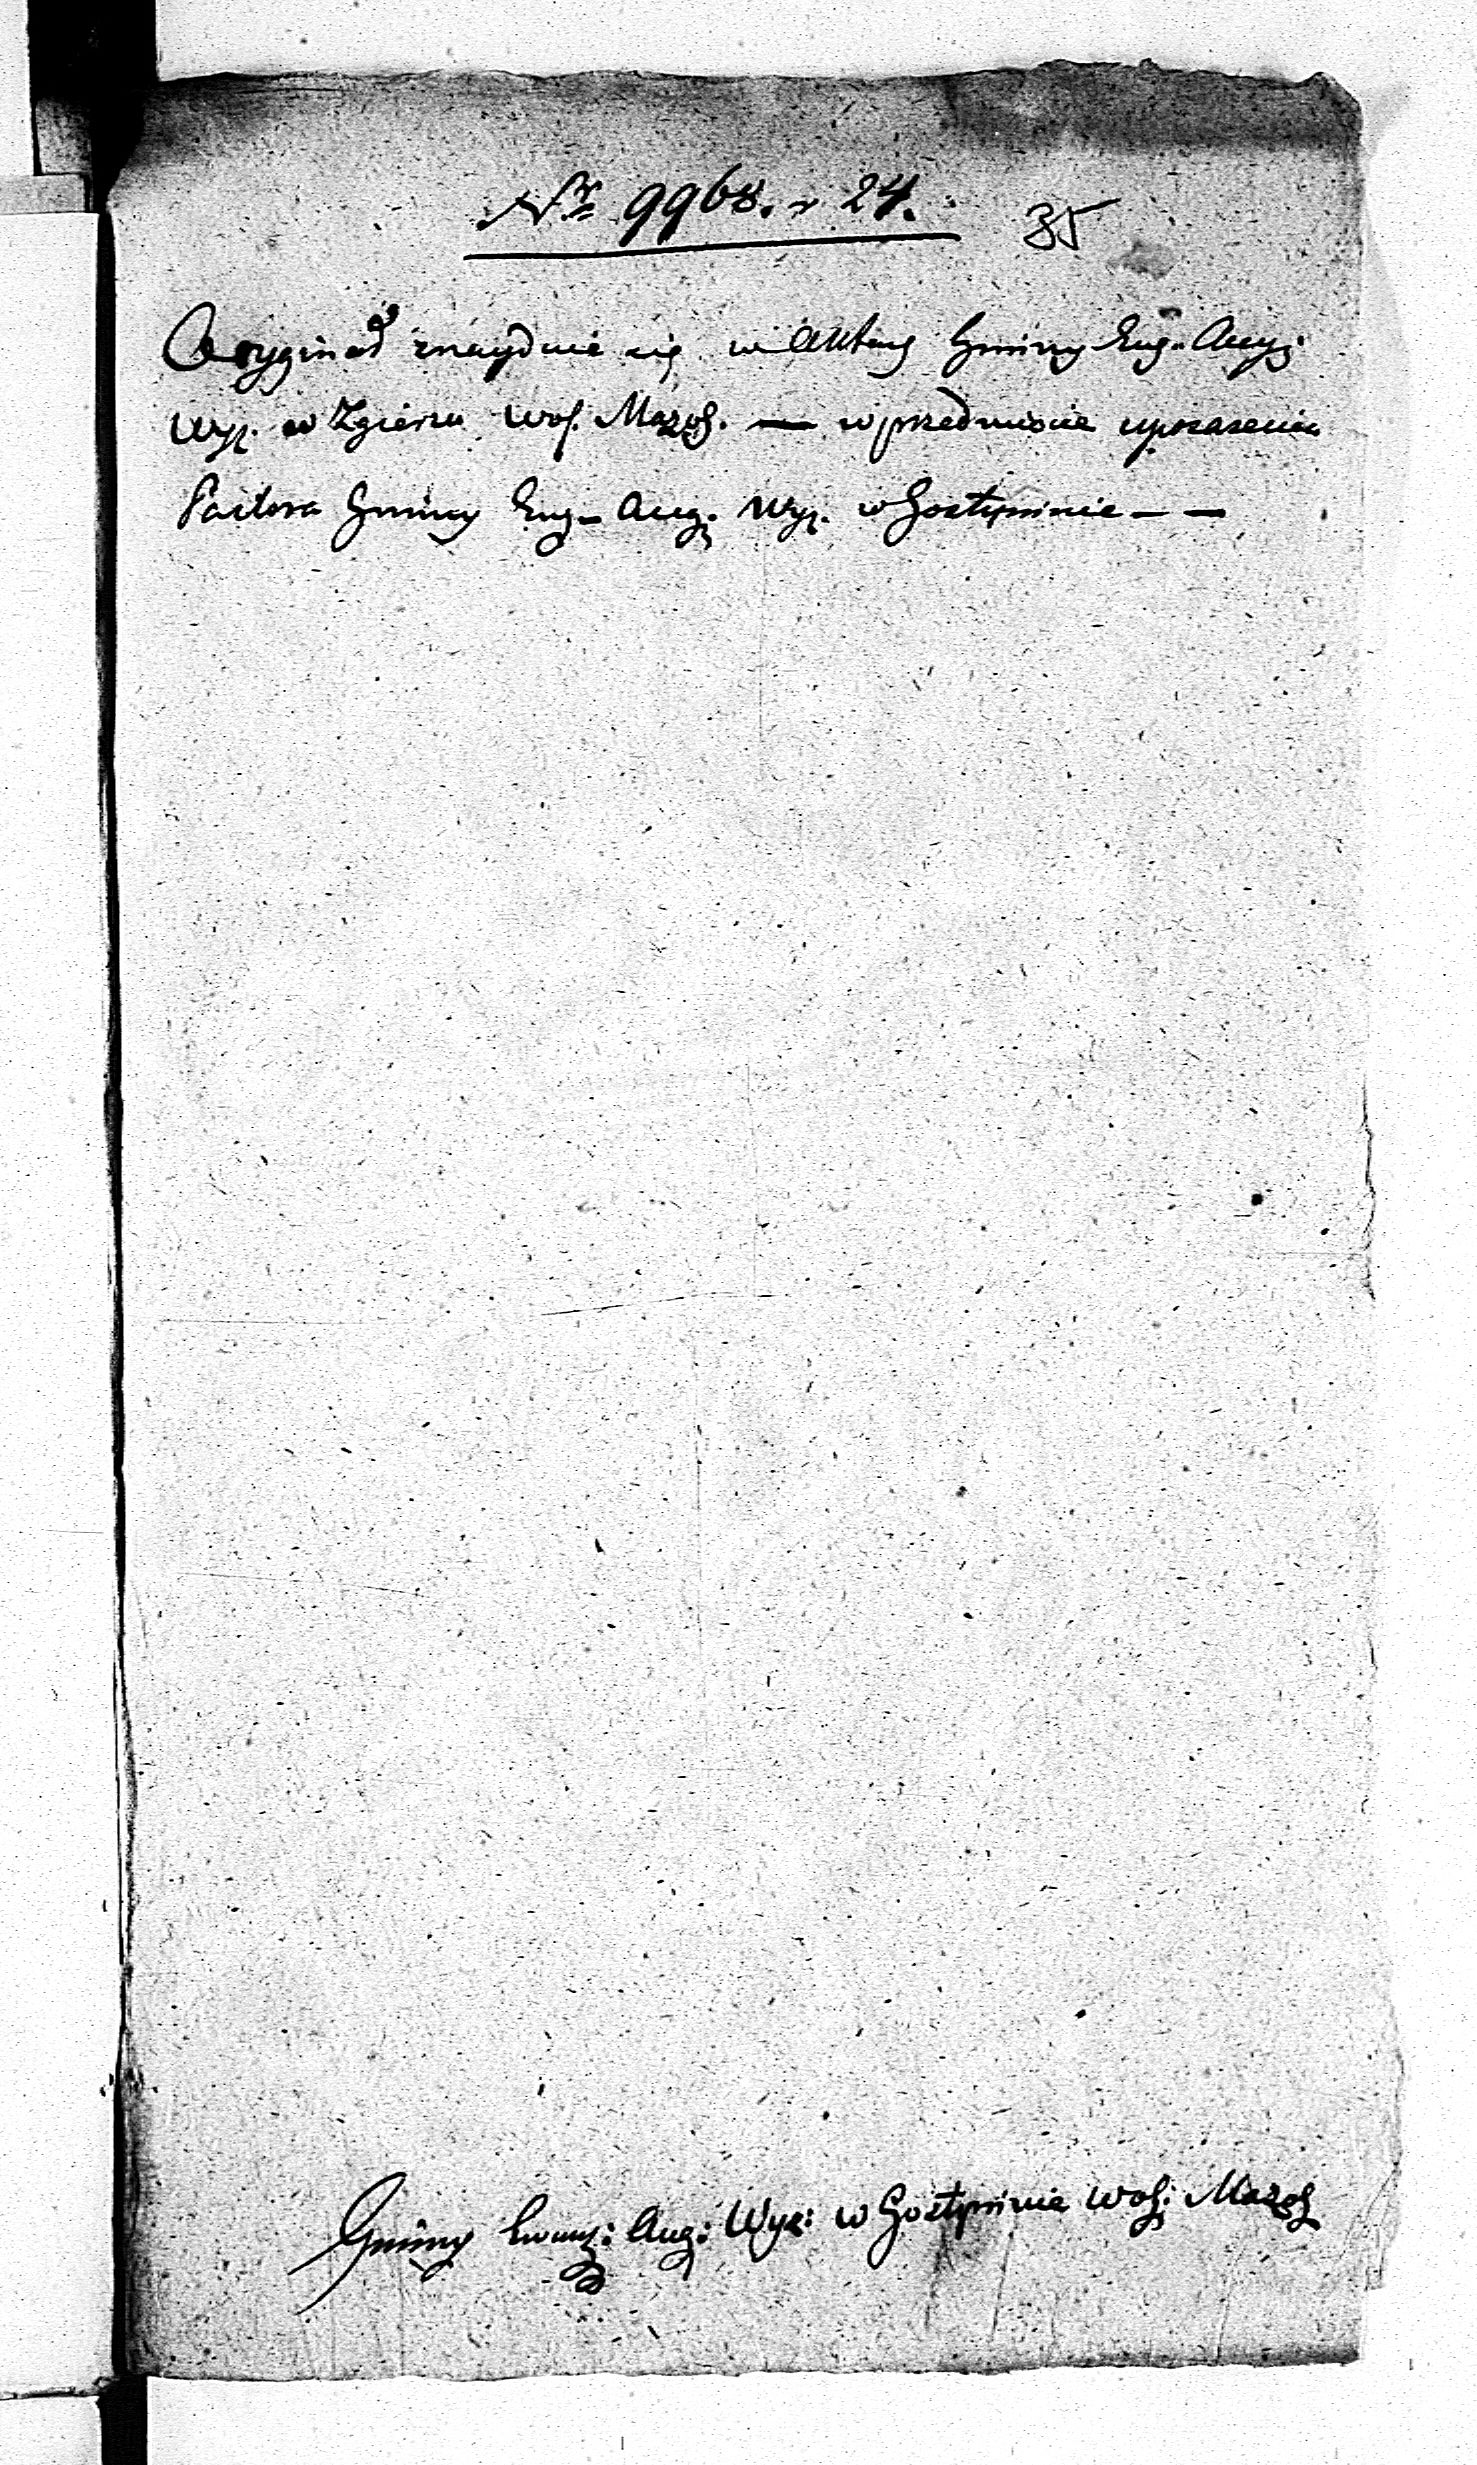 Nr 9968. r 24. 35
Oryginał znayduie się w Aktach Gminy Eug. Aug:
Wyz. w Zgierzu Woj. Mazow. — w przedmiocie uposarzenia
Pastora Gminy Eug. Aug: Wyz. w Gostyninie — —
Gminy Ewang: Aug: Wyz: w Gostyninie Woj: Mazow